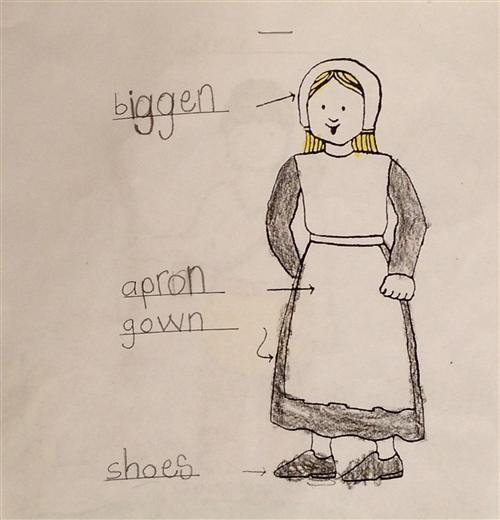 biggen
apron
gown
shoes